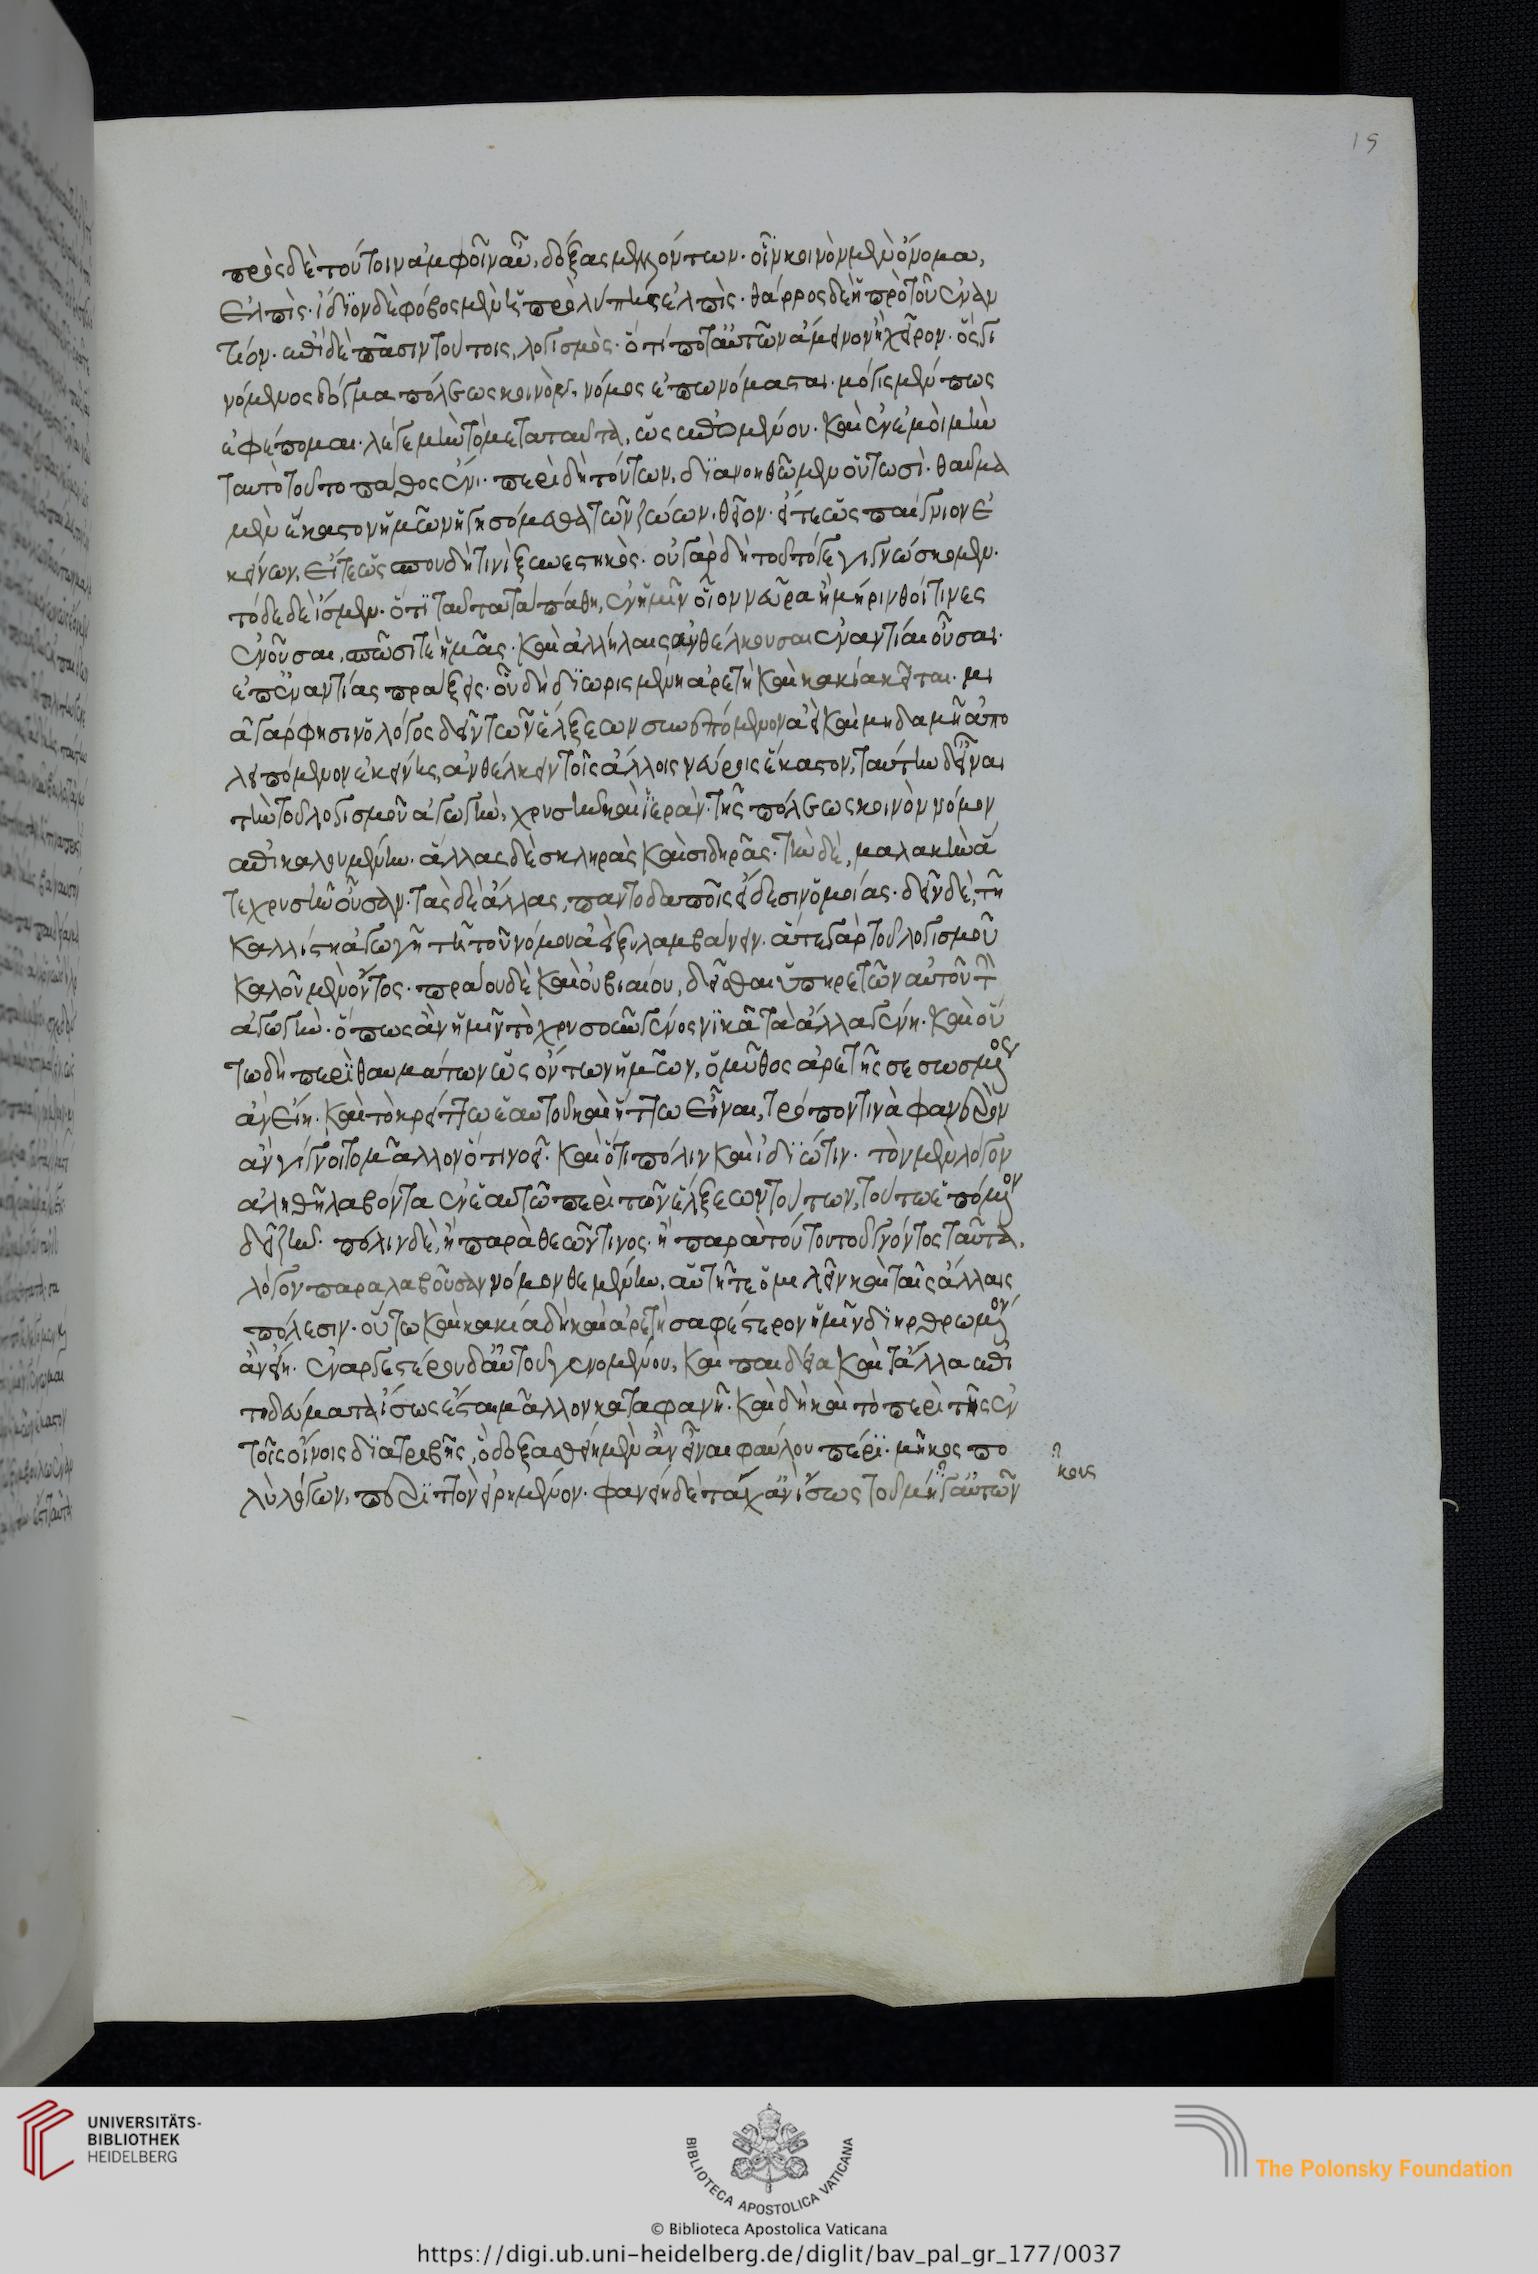 15
πρὸς δὲ τούτοιν ἀμφοῖν αὖ, δόξας μελλόντων· οἷν κοινὸν μὲν ὄνομα,
ἐλπὶς· ἴδιον δὲ φόβος μὲν ἡ πρὸ λύπης ἐλπὶς· θάρρος δὲ ἡ πρὸ τοῦ ἐναν
τίου· ἐπὶ δὲ πᾶσιν τούτοις, λογισμὸς· ὅ τί ποτ' αὐτῶν ἄμεινον ἢ χεῖρον· ὃς γε
νόμενος δόγμα πόλεως κοινὸν, νόμος ἐπωνόμασται· μόγις μέν πως
ἐφέπομαι· λέγε μὴν τὸ μετὰ ταῦτα, ὡς ἑπομένου· καὶ ἐν ἐμοὶ μὴν
ταυτὸ τοῦτο πάθος ἔνι· περὶ δὴ τούτων, διανοηθῶμεν οὑτωσὶ· θαῦμα
μὲν ἕκαστον ἡμῶν ἡγησώμεθα τῶν ζώων, θεῖον· εἴτε ὡς παίγνιον ἐ
κείνων, εἴτε ὡς σπουδῇ τινὶ ξυνεστηκὸς· οὐ γὰρ δὴ τοῦτό γε γιγνώσκομεν·
τόδε δὲ ἴσμεν· ὅτι ταῦτα τὰ πάθη, ἐν ἡμῖν οἷον νεῦρα ἢ μήρινθοί τινες
ἐνοῦσαι, σπῶσί τε ἡμᾶς· καὶ ἀλλήλαις ἀνθέλκουσαι ἐναντίαι οὖσαι·
ἐπ' ἐναντίας πράξεις· οὗ δὴ διωρισμένη ἀρετὴ καὶ κακία κεῖται· μι
ᾷ γάρ φησιν ὁ λόγος δεῖν τῶν ἕλξεων συνεπόμενον ἀεὶ καὶ μηδαμῇ ἀπο
λειπόμενον ἐκείνης, ἀνθέλκειν τοῖς ἄλλοις νεύροις ἕκαστον, ταύτην δ' εἶναι
τὴν τοῦ λογισμοῦ ἀγωγὴν, χρυσῆν καὶ ἱερὰν· τῆς πόλεως κοινὸν νόμον
ἐπικαλουμένην· ἄλλας δὲ σκληρὰς καὶ σιδηρᾶς· τὴν δὲ, μαλακὴν ἅ
τε χρυσῆν οὖσαν· τὰς δὲ ἄλλας, παντοδαποῖς εἴδεσιν ὁμοίας· δεῖν δὲ, τῇ
καλλίστῃ ἀγωγῇ τῇ τοῦ νόμου ἀεὶ ξυλλαμβάνειν· ἅτε γὰρ τοῦ λογισμοῦ
καλοῦ μὲν ὄντος· πράου δὲ καὶ οὐ βιαίου, δεῖσθαι ὑπηρετῶν αὐτοῦ τὴν
ἀγωγὴν· ὅπως ἂν ἡμῖν τὸ χρυσοῦν γένος νικᾷ τὰ ἄλλα γένη· καὶ οὕ
τω δὴ περὶ θαυμάτων ὡς ὄντων ἡμῶν, ὁ μῦθος ἀρετῆς σεσωσμένος
ἂν εἴη· καὶ τὸ κρείττω ἑαυτοῦ καὶ ἥττω εἶναι, τρόπον τινὰ φανερὸν
ἂν γίγνοιτο μᾶλλον ὅ τι νοεῖ· καὶ ὅτι πόλιν καὶ ἰδιώτην· τὸν μὲν λόγον
ἀληθῆ λαβόντα ἐν ἑαυτῷ περὶ τῶν ἕλξεων τούτων, τούτῳ ἑπόμενον
δεῖ ζῆν· πόλιν δὲ, ἢ παρὰ θεῶν τινος· ἢ παρὰ τούτου τοῦ γνόντος ταῦτα,
λόγον παραλαβοῦσαν νόμον θεμένην, αὑτῇ τε ὁμιλεῖν καὶ ταῖς ἄλλαις
πόλεσιν· οὕτω καὶ κακία δὴ καὶ ἀρετὴ σαφέστερον ἡμῖν διηρθρωμένον
ἂν εἴη· ἐναργεστέρου δ' αὐτοῦ γενομένου, καὶ παιδεία καὶ τἄλλα ἐπι
τηδεύματα ἴσως ἔσται μᾶλλον καταφανῆ· καὶ δὴ καὶ τὸ περὶ τῆς ἐν
τοῖς οἴνοις διατριβῆς, ὃ δοξασθείη μὲν ἂν εἶναι φαύλου πέρι· μῆκος πο
λὺ λόγων, περιττὸν εἰρημένον· φανείη δὲ τάχ' ἂν ἴσως τοῦ μή γ' αὐτῶν
κους
UNIVERSITÄTS-
BIBLIOTHEK
HEIDELBERG
BIBLIOTECA APOSTOLICA VATICANA
© Biblioteca Apostolica Vaticana
The Polonsky Foundation
https://digi.ub.uni-heidelberg.de/diglit/bav_pal_gr_177/0037